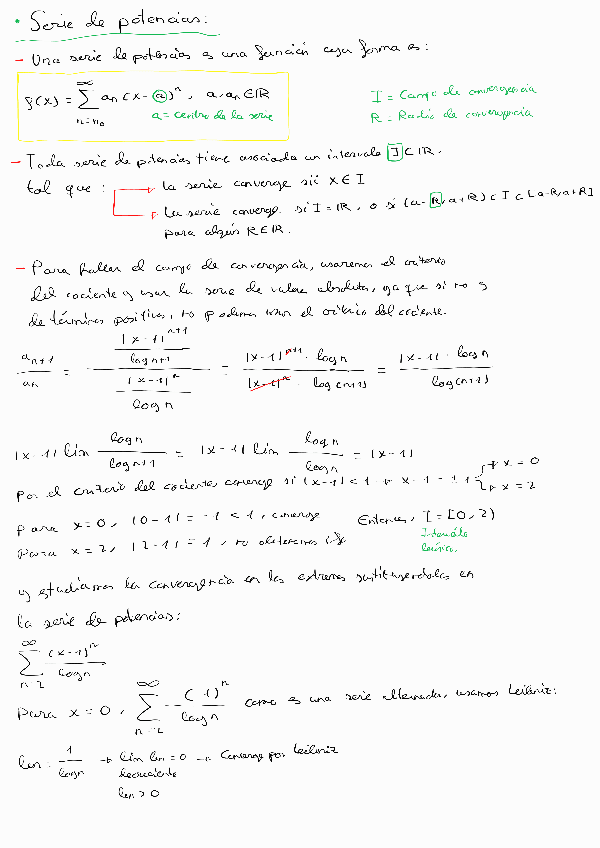 • Serie de potencias:
– Una serie de potencias es una función cuya forma es:
f(x) = ∑_{n=n₀}^{∞} aₙ (x-a)ⁿ, a, aₙ ∈ ℝ
a = centro de la serie
I = Campo de convergencia
R = Radio de convergencia
– Toda serie de potencias tiene asociada un intervalo I ⊂ ℝ,
tal que:
La serie converge sii x ∈ I
La serie converge si I = ℝ, o si (a-R, a+R) ⊂ I ⊂ [a-R, a+R]
para algún R ∈ ℝ.
– Para hallar el campo de convergencia, usaremos el criterio
del cociente y usar la serie de valor absoluto, ya que si no es
de términos positivos, no podemos usar el criterio del cociente.
aₙ₊₁/aₙ = (|x-1|ⁿ⁺¹ / log n+1) / (|x-1|ⁿ / log n) = |x-1|ⁿ⁺¹ · log n / |x-1|ⁿ · log(n+1) = |x-1| · log n / log(n+1)
|x-1| lím log n / log n+1 = |x-1| lím log n / log n = |x-1|
Por el criterio del cociente converge si |x-1| < 1 → x-1 = ±1 → x = 0 → x = 2
Para x=0, |0-1| = -1 < 1, converge
Entonces, I = [0, 2)
Para x=2, |2-1| = 1, no obtenemos
Intervalo
y estudiamos la convergencia en los extremos sustituyéndolos en
la serie de potencias:
∑_{n=2}^{∞} (x-1)ⁿ / log n
Para x=0, ∑_{n=2}^{∞} (-1)ⁿ / log n como es una serie alternada, usamos Leibniz:
bn = 1/log n → lím bn = 0 → Converge por Leibniz
Decreciente
bn > 0